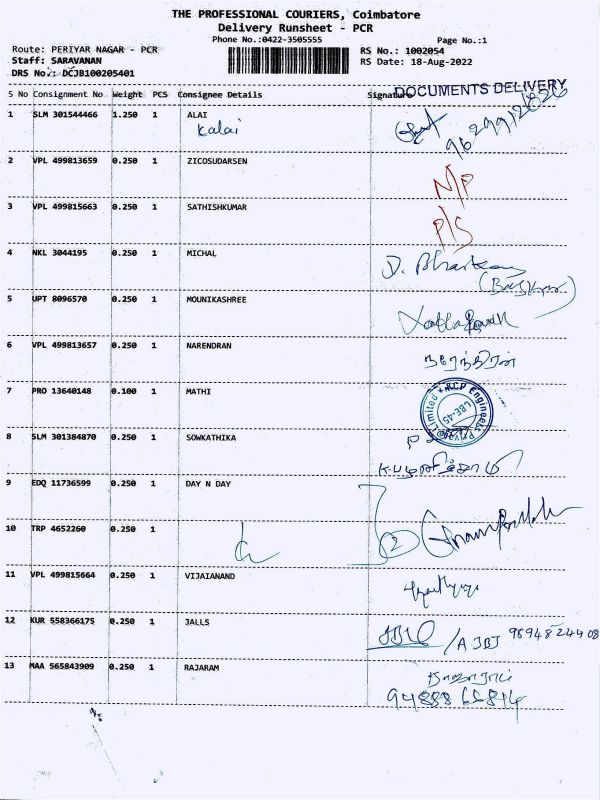 THE PROFESSIONAL COURIERS, Coimbatore
Delivery Runsheet - PCR
Phone No.:0422-3505555
Page No.:1
Route: PERIYAR NAGAR - PCR
RS No.: 1002054
Staff: SARAVANAN
RS Date: 18-Aug-2022
DRS No.: DCJB100205401
DOCUMENTS DELIVERY
S No Consignment No Weight PCS Consignee Details Signature
1 SLM 301544466 1.250 1 ALAI
Kalai
2 VPL 499813659 0.250 1 ZICOSUDARSEN N/P
3 VPL 499815663 0.250 1 SATHISHKUMAR P/S
4 NKL 3044195 0.250 1 MICHAL D. Bhaskar
(Baskar)
5 UPT 8096570 0.250 1 MOUNIKASHREE
6 VPL 499813657 0.250 1 NARENDRAN நரேந்திரன்
7 PRO 13640148 0.100 1 MATHI
KCP Engineers Private Limited
8 SLM 301384870 0.250 1 SOWKATHIKA
9 EDQ 11736599 0.250 1 DAY N DAY
10 TRP 4652260 0.250 1 2
11 VPL 499815664 0.250 1 VIJAIANAND
12 KUR 558366175 0.250 1 JALLS /AJBJ
13 MAA 565843909 0.250 1 RAJARAM ராஜாராம்